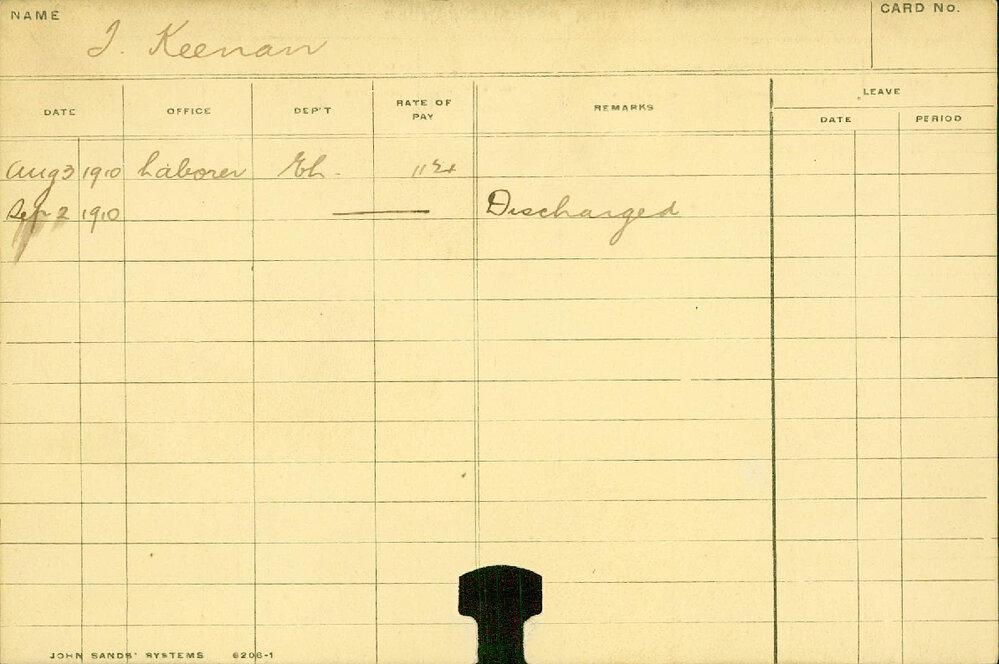 NAME
CARD No.
Keenan
DATE OFFICE DEP'T RATE OF PAY REMARKS LEAVE
DATE PERIOD
Aug 3 1910 Laborer
Sep 2 1910 Discharged
JOHN SANDS' SYSTEMS 6206-1